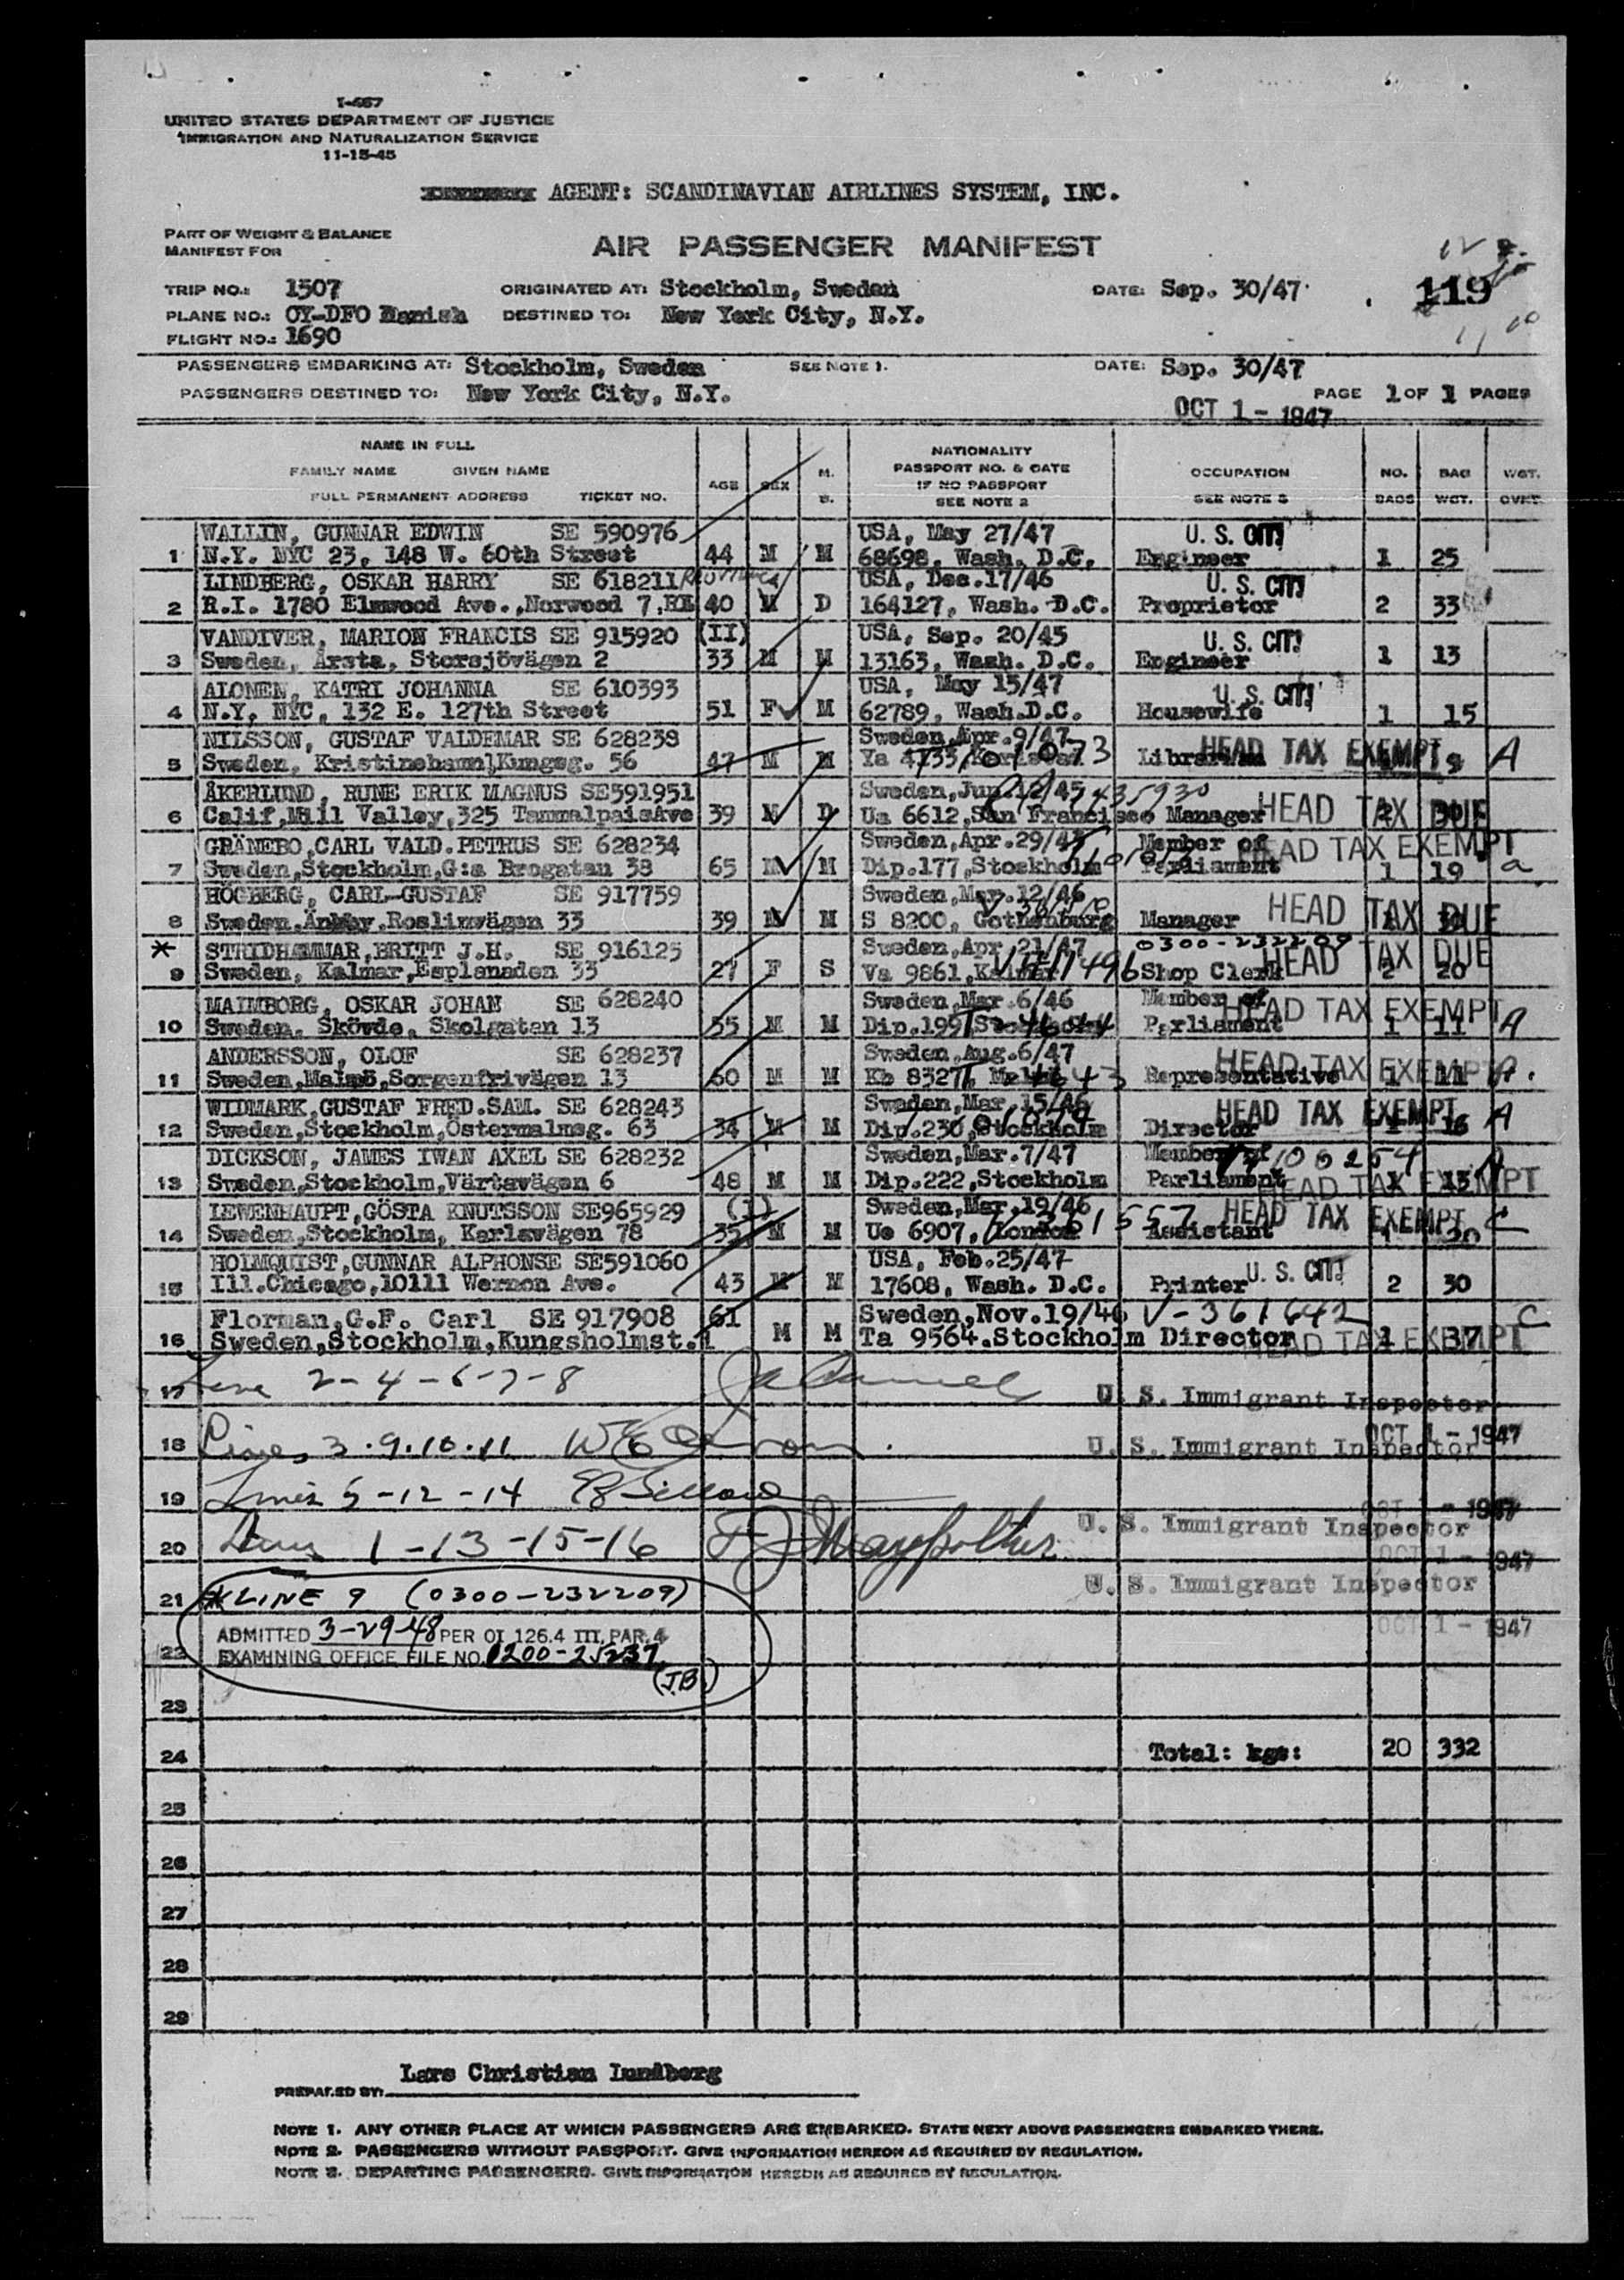 I-467
UNITED STATES DEPARTMENT OF JUSTICE
IMMIGRATION AND NATURALIZATION SERVICE
11-15-45
AGENT: SCANDINAVIAN AIRLINES SYSTEM, INC.
PART OF WEIGHT & BALANCE
MANIFEST FOR
AIR PASSENGER MANIFEST
TRIP NO.: 1507 ORIGINATED AT: Stockholm, Sweden DATE: Sep. 30/47 119
PLANE NO.: OY-DFO Danish DESTINED TO: New York City, N.Y.
FLIGHT NO.: 1690
PASSENGERS EMBARKING AT: Stockholm, Sweden SEE NOTE 1. DATE: Sep. 30/47
PASSENGERS DESTINED TO: New York City, N.Y. PAGE 1 OF 1 PAGES
OCT 1 - 1947
NAME IN FULL
FAMILY NAME GIVEN NAME
FULL PERMANENT ADDRESS TICKET NO.
AGE SEX M. S.
NATIONALITY
PASSPORT NO. & DATE
IF NO PASSPORT
SEE NOTE 2
OCCUPATION
SEE NOTE 3
NO. BAGS
BAG WGT.
WGT. OVWT.
WALLIN, GUNNAR EDWIN SE 590976 USA, May 27/47 U. S. CIT
1 N.Y. NYC 23, 148 W. 60th Street 44 M M 68698, Wash. D.C. Engineer 1 25
LINDBERG, OSKAR HARRY SE 618211 USA, Dec.17/46 U. S. CIT
2 R.I. 1780 Elmwood Ave.,Norwood 7,RI 40 M D 164127, Wash. D.C. Proprietor 2 33
VANDIVER, MARION FRANCIS SE 915920 (II) USA, Sep. 20/45 U. S. CIT
3 Sweden, Årsta, Storsjövägen 2 33 M M 13163, Wash. D.C. Engineer 1 13
ALONEN, KATRI JOHANNA SE 610393 USA, May 15/47 U. S. CIT
4 N.Y, NYC, 132 E. 127th Street 51 F M 62789, Wash.D.C. Housewife 1 15
NILSSON, GUSTAF VALDEMAR SE 628238 Sweden,Apr.9/47
5 Sweden, Kristinehamn,Kungsg. 56 47 M M Ya 4735, HEAD TAX EXEMPT A
ÅKERLUND, RUNE ERIK MAGNUS SE591951 Sweden,Jun.12/45
6 Calif,Mill Valley,325 TammalpaisAve 39 M D Ua 6612,San Francisco Manager HEAD TAX DUE
GRÄNEBO,CARL VALD.PETRUS SE 628234 Sweden,Apr.29/45 Member of HEAD TAX EXEMPT
7 Sweden,Stockholm,G:a Brogatan 38 65 M M Dip.177,Stockholm Parliament 1 19 a
HÖGBERG, CARL-GUSTAF SE 917759 Sweden,Mar.12/46
8 Sweden,Änbby,Roslinvägen 33 39 M M S 8200, Gothenburg Manager HEAD TAX DUE
* STRIDHAMMAR,BRITT J.H. SE 916125 Sweden,Apr.21/47 0300-232209
9 Sweden, Kalmar,Esplanaden 33 27 F S Va 9861,Kalmar Shop Clerk HEAD TAX DUE 2 20
MALMBORG, OSKAR JOHAN SE 628240 Sweden,Mar.6/46 Member of HEAD TAX EXEMPT
10 Sweden, Skövde, Skolgatan 13 55 M M Dip.199, Parliament 1 11 A
ANDERSSON, OLOF SE 628237 Sweden,Aug.6/47 HEAD TAX EXEMPT
11 Sweden,Malmö,Sorgenfrivägen 13 60 M M Kb 8327, Representative 1 11 A.
WIDMARK,GUSTAF FRED.SAM. SE 628243 Sweden,Mar.15/46 HEAD TAX EXEMPT
12 Sweden,Stockholm,Östermalmsg. 63 34 M M Dip.230,Stockholm Director 16 A
DICKSON, JAMES IWAN AXEL SE 628232 Sweden,Mar.7/47 Member of
13 Sweden,Stockholm,Värtavägen 6 48 M M Dip.222,Stockholm Parliament 1 13 HEAD TAX EXEMPT
LEWENHAUPT,GÖSTA KNUTSSON SE965929 (I) Sweden,Mar.19/46 HEAD TAX EXEMPT C
14 Sweden,Stockholm, Karlavägen 78 35 M M Ue 6907, London Assistant 1 30
HOLMQUIST,GUNNAR ALPHONSE SE591060 USA, Feb.25/47
15 Ill.Chicago,10111 Wernon Ave. 43 M M 17608, Wash. D.C. Printer U. S. CIT 2 30
Florman,G.F. Carl SE 917908 61 Sweden,Nov.19/46 V-361642 C
16 Sweden,Stockholm,Kungsholmst.1 M M Ta 9564.Stockholm Director 1 37 HEAD TAX EXEMPT
17 2-4-6-7-8 U. S. Immigrant Inspector
18 Lines 3.9.10.11 U. S. Immigrant Inspector OCT 1 - 1947
19 Lines 5-12-14
20 Lines 1-13-15-16 U. S. Immigrant Inspector
OCT 1 - 1947
21 *LINE 9 (0300-232209) U. S. Immigrant Inspector
ADMITTED 3-29-48 PER OI 126.4 III, PAR. 4 OCT 1 - 1947
22 EXAMINING OFFICE FILE NO. 0200-25237
(J.B.)
23
24 Total: kgs: 20 332
25
26
27
28
29
Lars Christian
PREPARED BY:
NOTE 1. ANY OTHER PLACE AT WHICH PASSENGERS ARE EMBARKED. STATE NEXT ABOVE PASSENGERS EMBARKED THERE.
NOTE 2. PASSENGERS WITHOUT PASSPORT. GIVE INFORMATION HEREON AS REQUIRED BY REGULATION.
NOTE 3. DEPARTING PASSENGERS. GIVE INFORMATION HEREON AS REQUIRED BY REGULATION.